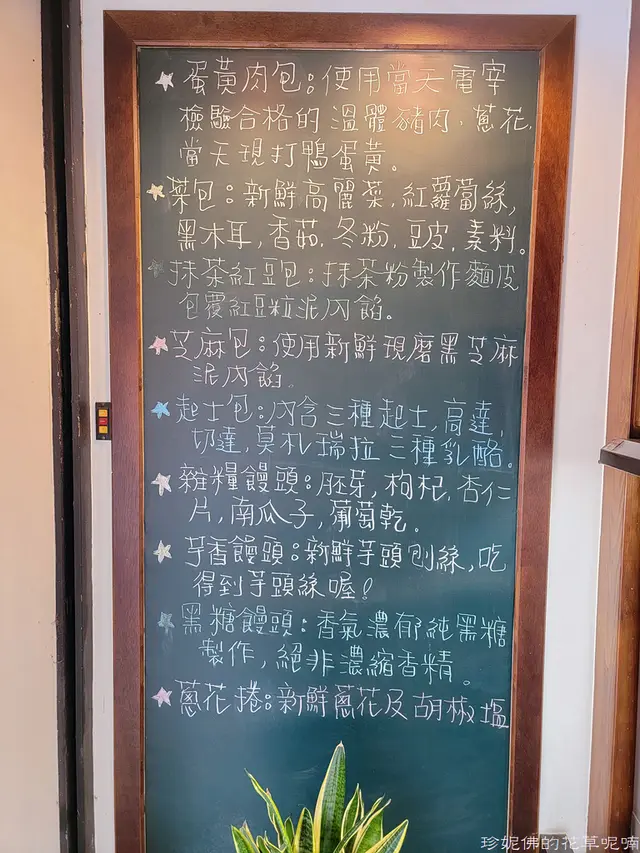 蛋黃肉包:使用當天電宰
檢驗合格的溫體豬肉,蔥花,
當天現打鴨蛋黃。
菜包:新鮮高麗菜,紅蘿蔔絲,
黑木耳,香菇,冬粉,豆皮,素料。
抹茶紅豆包:抹茶粉製作麵皮
包覆紅豆粒泥內餡。
芝麻包:使用新鮮現磨黑芝麻
泥內餡。
起士包:內含三種起士,高達,
切達,莫札瑞拉三種乳酪。
雜糧饅頭:胚芽,枸杞,杏仁
片,南瓜子,葡萄乾。
芋香饅頭:新鮮芋頭刨絲,吃
得到芋頭絲喔!
黑糖饅頭:香氣濃郁純黑糖
製作,絕非濃縮香精。
蔥花捲:新鮮蔥花及胡椒塩
珍妮佛的花草呢喃